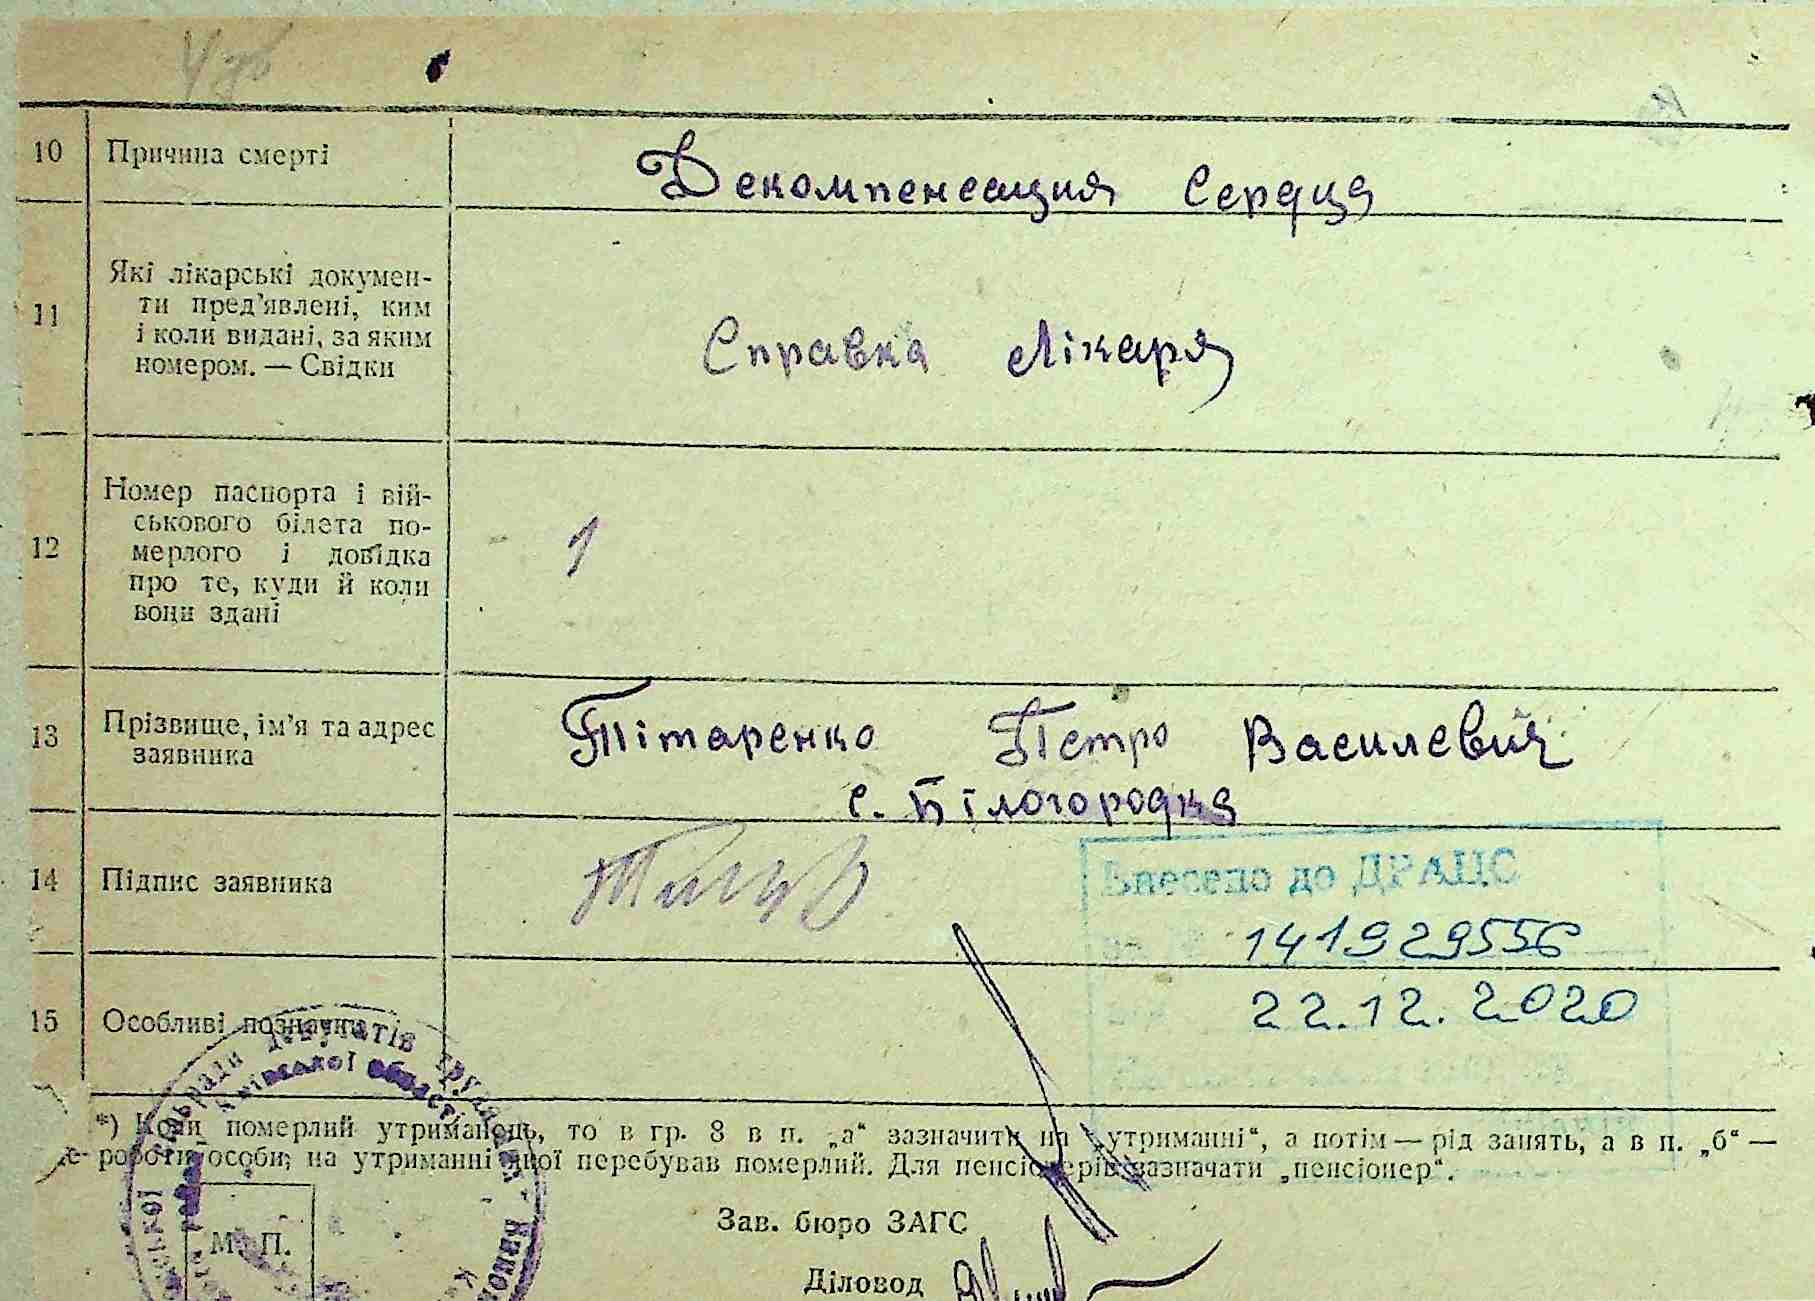 10 Причина смерті Декомпенсация Сердца
11 Які лікарські докумен-
ти пред'явлені, ким
і коли видані, за яким
номером. — Свідки
Справка Лікаря
12 Номер паспорта і вій-
ськового білета по-
мерлого і довідка
про те, куди й коли
вони здані
1
13 Прізвище, ім'я та адрес
заявника
Тітаренко Петро Василевич
с. Білогородка
14 Підпис заявника
Внесено до ДРАЦС
141929556
22.12.2020
15 Особливі позначки
*) Коли померлий утриманець, то в гр. 8 в п. „а“ зазначити на „утриманні“, а потім — рід занять, а в п. „б“ —
роботи особи, на утриманні якої перебував померлий. Для пенсіонерів зазначати „пенсіонер“.
Зав. бюро ЗАГС
М. П.
Діловод
депутатів
області